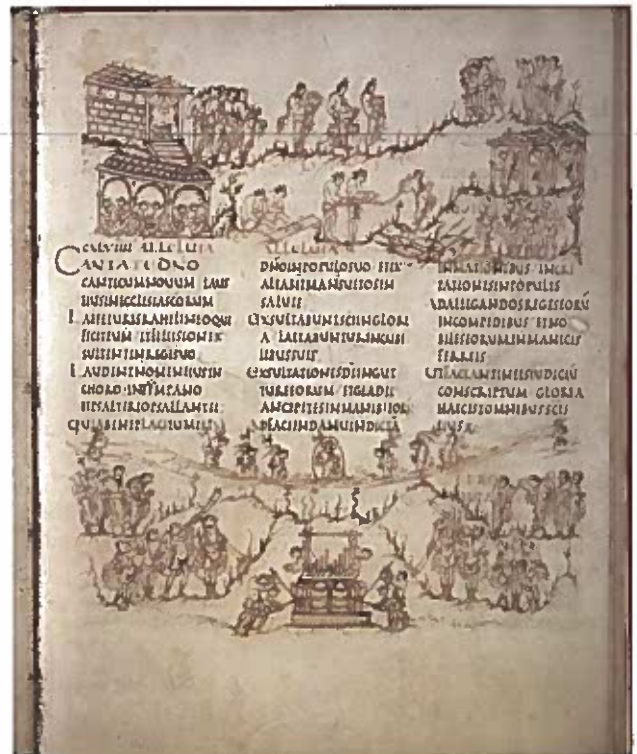 CXLVIIII ALLELUIA
CANTATE DNO
CANTICUM NOUUM LAUS
EIUS IN ECCLESIA SCORUM
LAETETUR ISRAHEL IN EO QUI
FECIT EUM ET FILIE SION EX
SULTENT IN REGE SUO
LAUDENT NOMEN EIUS IN
CHORO INTYMPANO
ET PSALTERIO PSALLANT EI
QUIA BENEPLACITUM EST
ALLELUIA
DNO IN POPULO SUO ET EX
ALTABIT MANSUETOS IN
SALUTE
EXSULTABUNT SCI IN GLORI
A LAETABUNTUR IN CUBI
LIBUS SUIS
EXSULTATIONES DI IN GUT
TURE EORUM ET GLADII
ANCIPITES IN MANIB EOR
AD FACIENDAM UINDICTĀ
IN NATIONIBUS INCRE
PATIONES IN POPULIS
AD ALLIGANDOS REGES EORŪ
IN COMPEDIBUS ET NO
BILES EORUM IN MANICIS
FERREIS
UT FACIANT IN EIS IUDICIŪ
CONSCRIPTUM GLORIA
HAEC EST OMNIBUS SCIS
EIUS